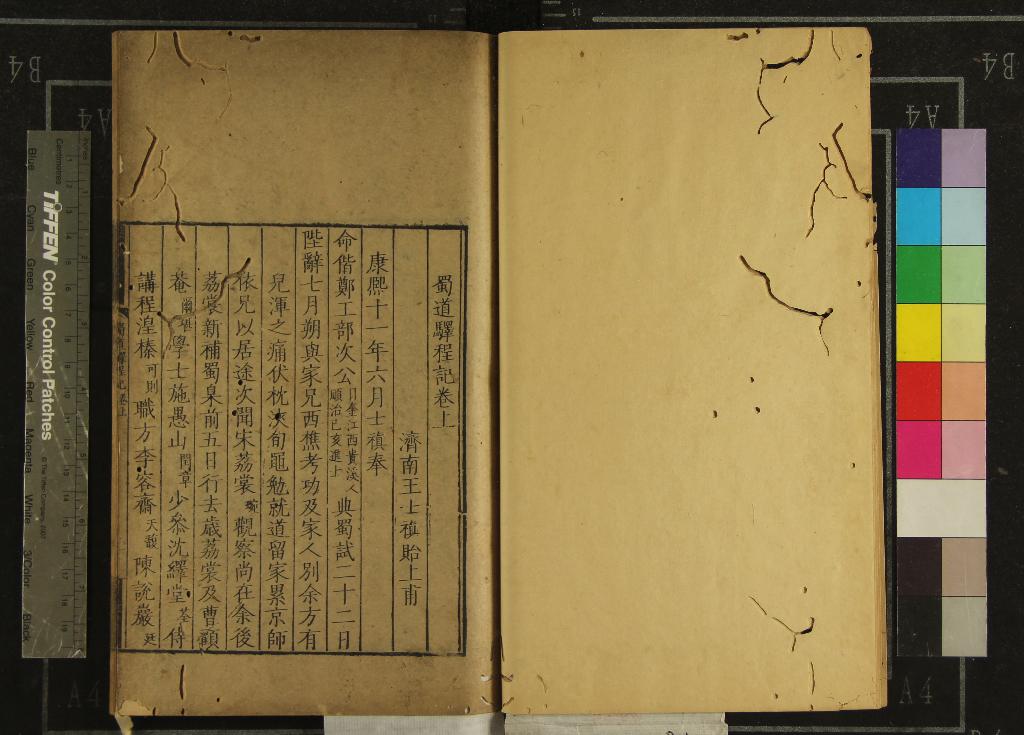 蜀道驛程記卷上
濟南王士禛貽上甫
康熙十一年六月士禛奉
命偕鄭工部次公日奎江西貴溪人順治己亥進士典蜀試二十二日
陛辭七月朔與家兄西樵考功及家人別余方有
兒渾之痛伏枕浹旬黽勉就道留家累京師
依兄以居途次聞宋荔裳琬觀察尚在余後
荔裳新補蜀臬前五日行去歲荔裳及曹顧
菴爾堪學士施愚山閏章少參沈繹堂荃侍
講程湟榛可則職方李容齋天馥陳說巖廷
蜀道驛程記卷上
B4
A4
B4
A4
A4
A4
TIFFEN Color Control Patches
© The Tiffen Company, 2007
Centimetres
Inches
Blue
Cyan
Green
Yellow
Red
Magenta
White
3/Color
Black